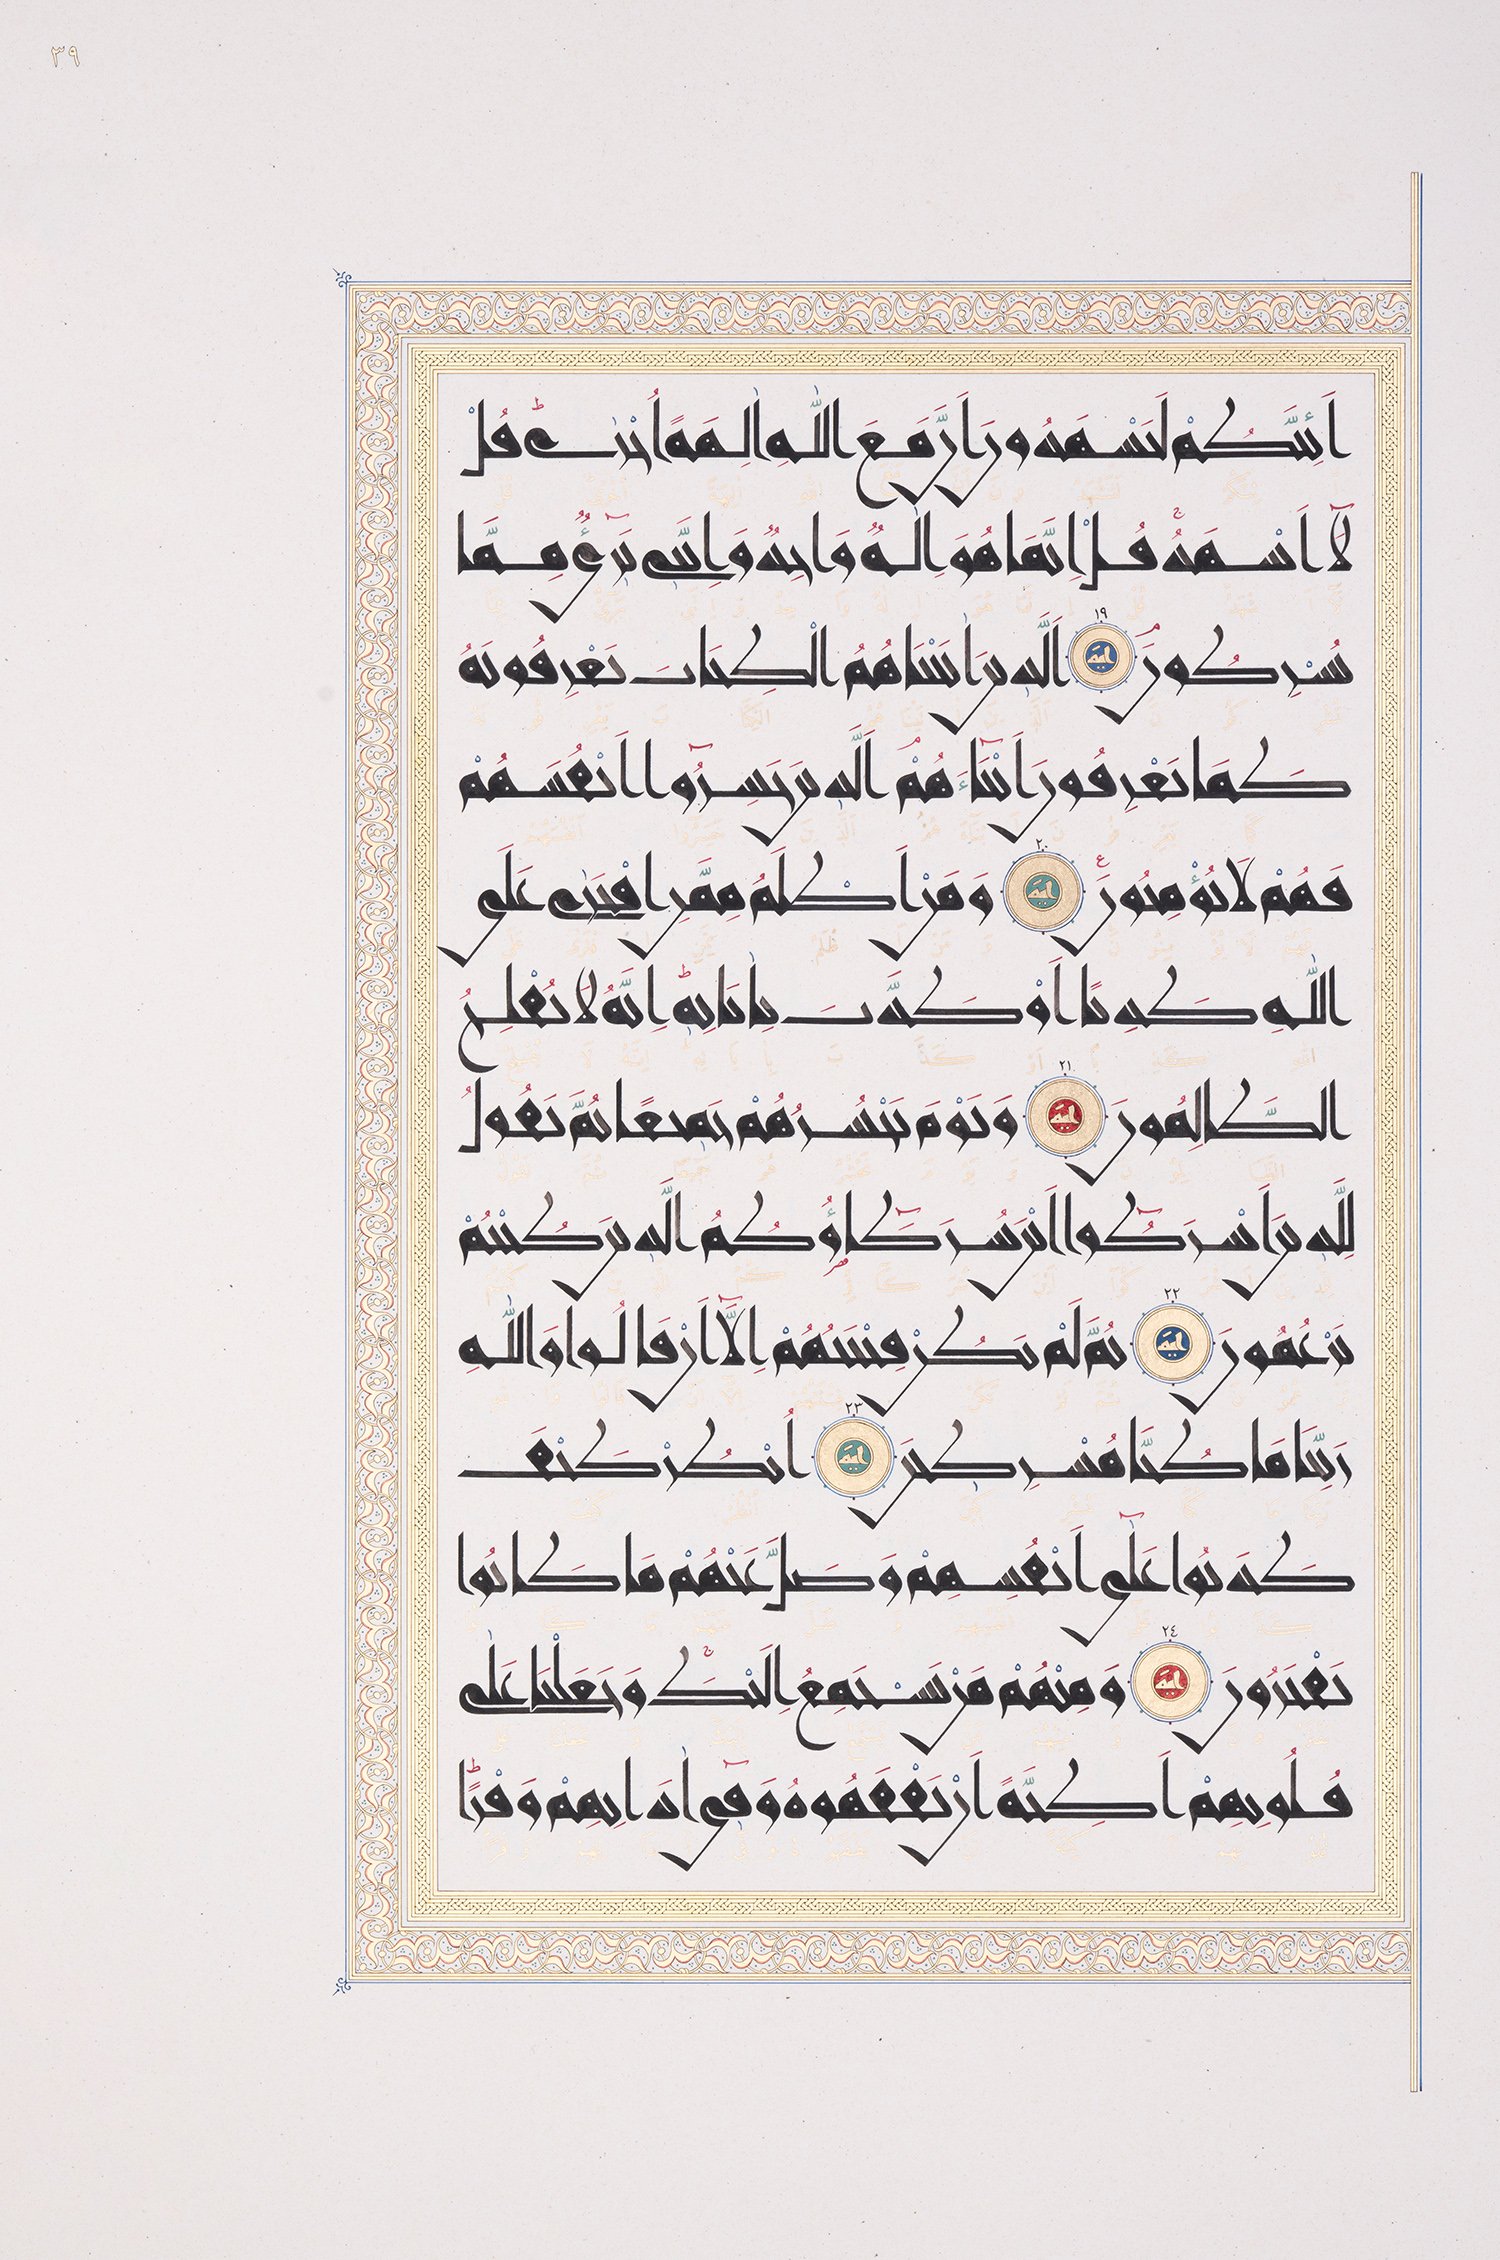 ٣٩
أَئِنَّكُمْ لَتَشْهَدُونَ أَنَّ مَعَ اللّٰهِ اٰلِهَةً أُخْرٰىؕ قُلْ
لَآ أَشْهَدُۚ قُلْ إِنَّمَا هُوَ إِلٰهٌ وَاحِدٌ وَإِنَّنِى بَرِىٓءٌ مِمَّا
تُشْرِكُونَۘ ١٩ اَلَّذِينَ اٰتَيْنَاهُمُ الْكِتَابَ يَعْرِفُونَهُ
كَمَا يَعْرِفُونَ أَبْنَآءَهُمْۘ اَلَّذِينَ خَسِرُوٓا أَنْفُسَهُمْ
فَهُمْ لَا يُؤْمِنُونَ ٢٠ وَمَنْ أَظْلَمُ مِمَّنِ افْتَرٰى عَلَى
اللّٰهِ كَذِبًا أَوْ كَذَّبَ بِاٰيَاتِهٖؕ إِنَّهُ لَا يُفْلِحُ
الظَّالِمُونَ ٢١ وَيَوْمَ نَحْشُرُهُمْ جَمِيعًا ثُمَّ نَقُولُ
لِلَّذِينَ أَشْرَكُوٓا أَيْنَ شُرَكَآؤُكُمُ الَّذِينَ كُنْتُمْ
تَزْعُمُونَ ٢٢ ثُمَّ لَمْ تَكُنْ فِتْنَتُهُمْ إِلَّآ أَنْ قَالُوا وَاللّٰهِ
رَبِّنَا مَا كُنَّا مُشْرِكِينَ ٢٣ أُنْظُرْ كَيْفَ
كَذَبُوا عَلٰٓى أَنْفُسِهِمْ وَضَلَّ عَنْهُمْ مَا كَانُوا
يَفْتَرُونَ ٢٤ وَمِنْهُمْ مَنْ يَسْتَمِعُ إِلَيْكَۚ وَجَعَلْنَا عَلٰى
قُلُوبِهِمْ أَكِنَّةً أَنْ يَفْقَهُوهُ وَفِىٓ اٰذَانِهِمْ وَقْرًاؕ